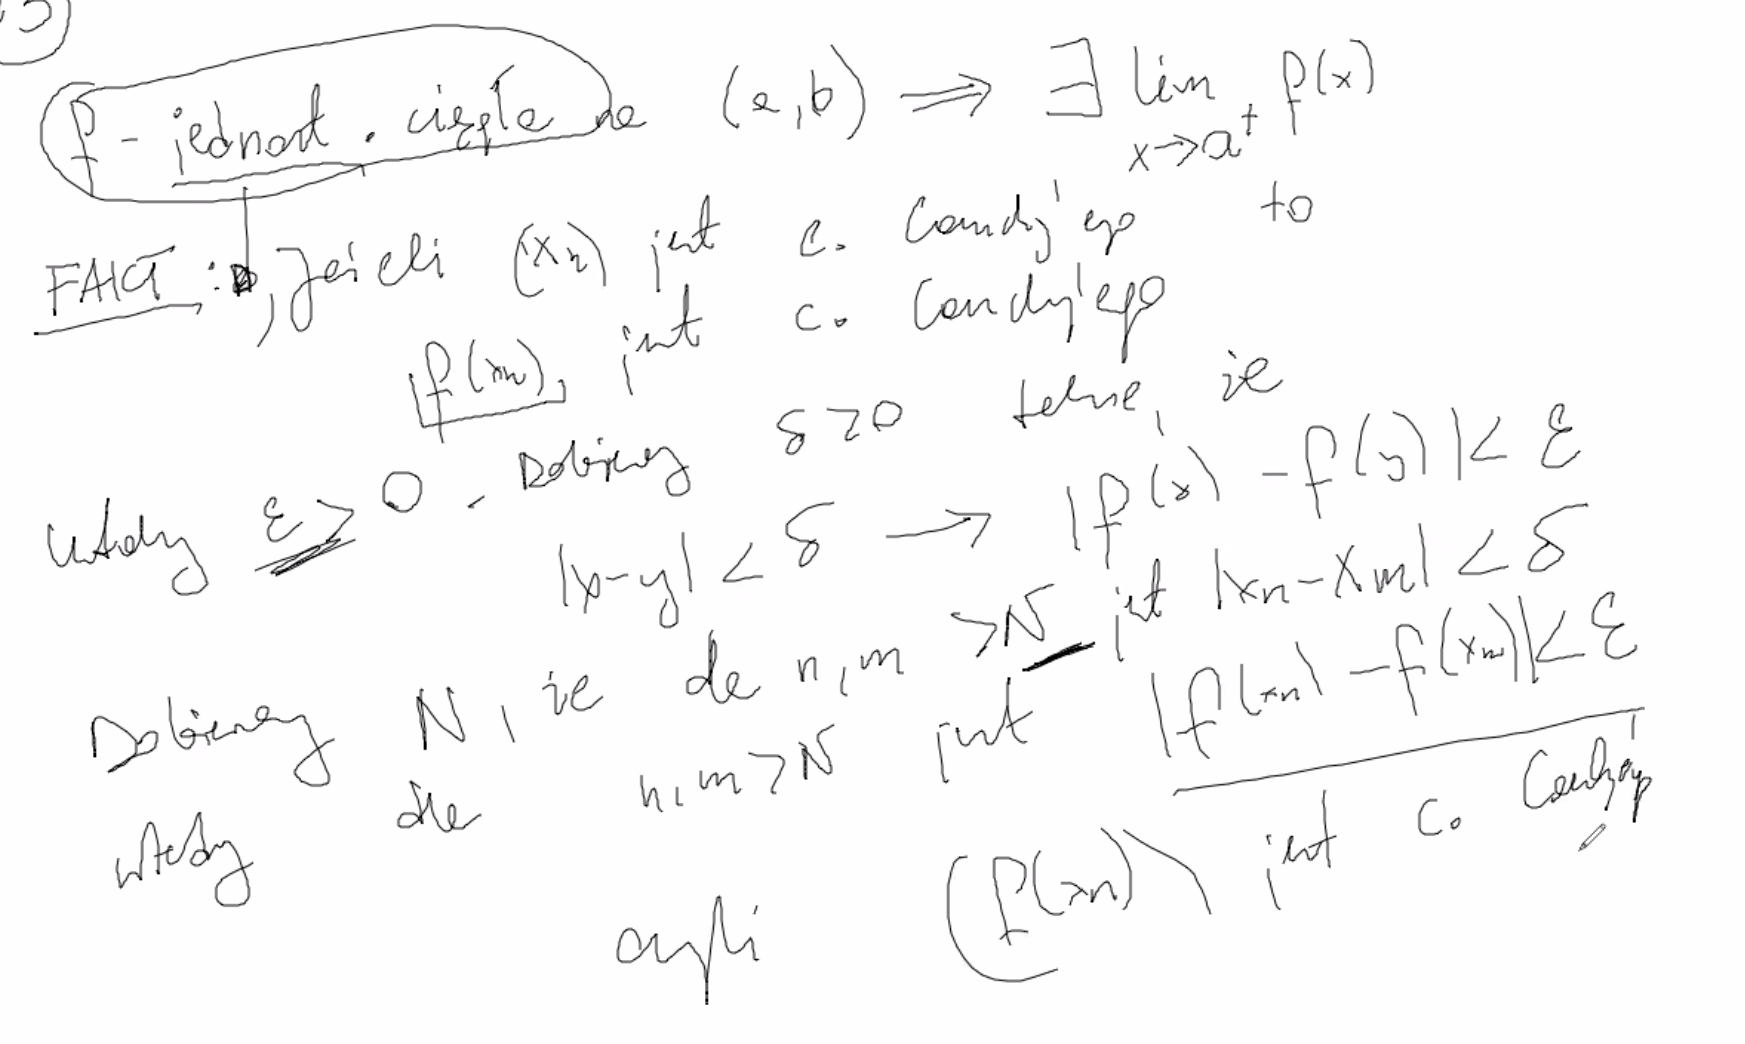 f - jednost. ciągła na (a,b) ⟹ ∃ lim x→a⁺ f(x)
FAKT: , Jeśli (xn) jest c. Cauchy'ego to
f(xn) jest c. Cauchy'ego
Wtedy ε > 0. Dobierzmy δ > 0 takie, że
|x-y| < δ → |f(x) - f(y)| < ε
Dobierzmy N, że dla n,m > N jest |xn - xm| < δ
wtedy dla n,m > N jest |f(xn) - f(xm)| < ε
czyli (f(xn)) jest c. Cauchy'ego